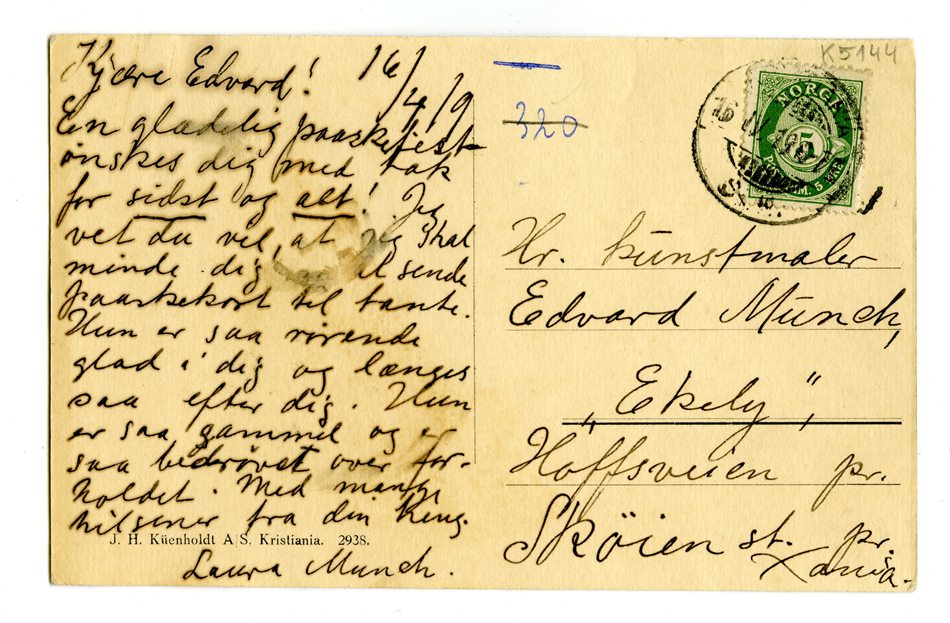 Kjære Edvard! 16/4/19
En glædelig paaskefest
ønskes dig med tak
for sidst og alt! Jeg
vet du vel, at jeg skal
minde dig, at sende
paaskekort til tante.
Hun er saa rørende
glad i dig og længes
saa efter dig. Hun
er saa gammel og er
saa bedrøvet over for-
holdet. Med mange
hilsener fra din heng.
Laura Munch.
J. H. Küenholdt A/S. Kristiania. 2938.
K5144
320
NORGE
5
16
Hr. kunstmaler
Edvard Munch,
„Ekely",
Hoffsveien pr.
Skøien st. pr.
Xania.